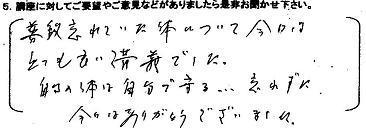 5. 講座に対してご要望やご意見などがありましたら是非お聞かせ下さい。
普段忘れていた体について今日は
とても良い講義でした。
自分の体は自分で守る… 忘れずに
今日はありがとうございました。